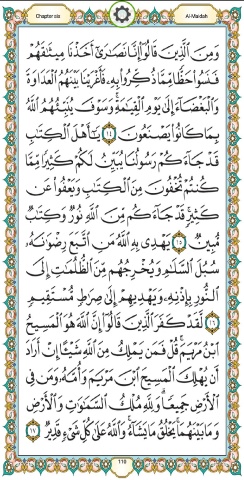 Chapter six
Al-Maidah
وَمِنَ ٱلَّذِينَ قَالُوٓا۟ إِنَّا نَصَـٰرَىٰٓ أَخَذْنَا مِيثَـٰقَهُمْ
فَنَسُوا۟ حَظًّا مِّمَّا ذُكِّرُوا۟ بِهِۦ فَأَغْرَيْنَا بَيْنَهُمُ ٱلْعَدَاوَةَ
وَٱلْبَغْضَآءَ إِلَىٰ يَوْمِ ٱلْقِيَـٰمَةِ ۚ وَسَوْفَ يُنَبِّئُهُمُ ٱللَّهُ
بِمَا كَانُوا۟ يَصْنَعُونَ ١٤ يَـٰٓأَهْلَ ٱلْكِتَـٰبِ
قَدْ جَآءَكُمْ رَسُولُنَا يُبَيِّنُ لَكُمْ كَثِيرًا مِّمَّا
كُنتُمْ تُخْفُونَ مِنَ ٱلْكِتَـٰبِ وَيَعْفُوا۟ عَن
كَثِيرٍ ۚ قَدْ جَآءَكُم مِّنَ ٱللَّهِ نُورٌ وَكِتَـٰبٌ
مُّبِينٌ ١٥ يَهْدِى بِهِ ٱللَّهُ مَنِ ٱتَّبَعَ رِضْوَٰنَهُۥ
سُبُلَ ٱلسَّلَـٰمِ وَيُخْرِجُهُم مِّنَ ٱلظُّلُمَـٰتِ إِلَى
ٱلنُّورِ بِإِذْنِهِۦ وَيَهْدِيهِمْ إِلَىٰ صِرَٰطٍ مُّسْتَقِيمٍ
١٦ لَّقَدْ كَفَرَ ٱلَّذِينَ قَالُوٓا۟ إِنَّ ٱللَّهَ هُوَ ٱلْمَسِيحُ
ٱبْنُ مَرْيَمَ ۚ قُلْ فَمَن يَمْلِكُ مِنَ ٱللَّهِ شَيْـًٔا إِنْ أَرَادَ
أَن يُهْلِكَ ٱلْمَسِيحَ ٱبْنَ مَرْيَمَ وَأُمَّهُۥ وَمَن فِى
ٱلْأَرْضِ جَمِيعًا ۗ وَلِلَّهِ مُلْكُ ٱلسَّمَـٰوَٰتِ وَٱلْأَرْضِ
وَمَا بَيْنَهُمَا ۚ يَخْلُقُ مَا يَشَآءُ ۚ وَٱللَّهُ عَلَىٰ كُلِّ شَىْءٍ قَدِيرٌ ١٧
110